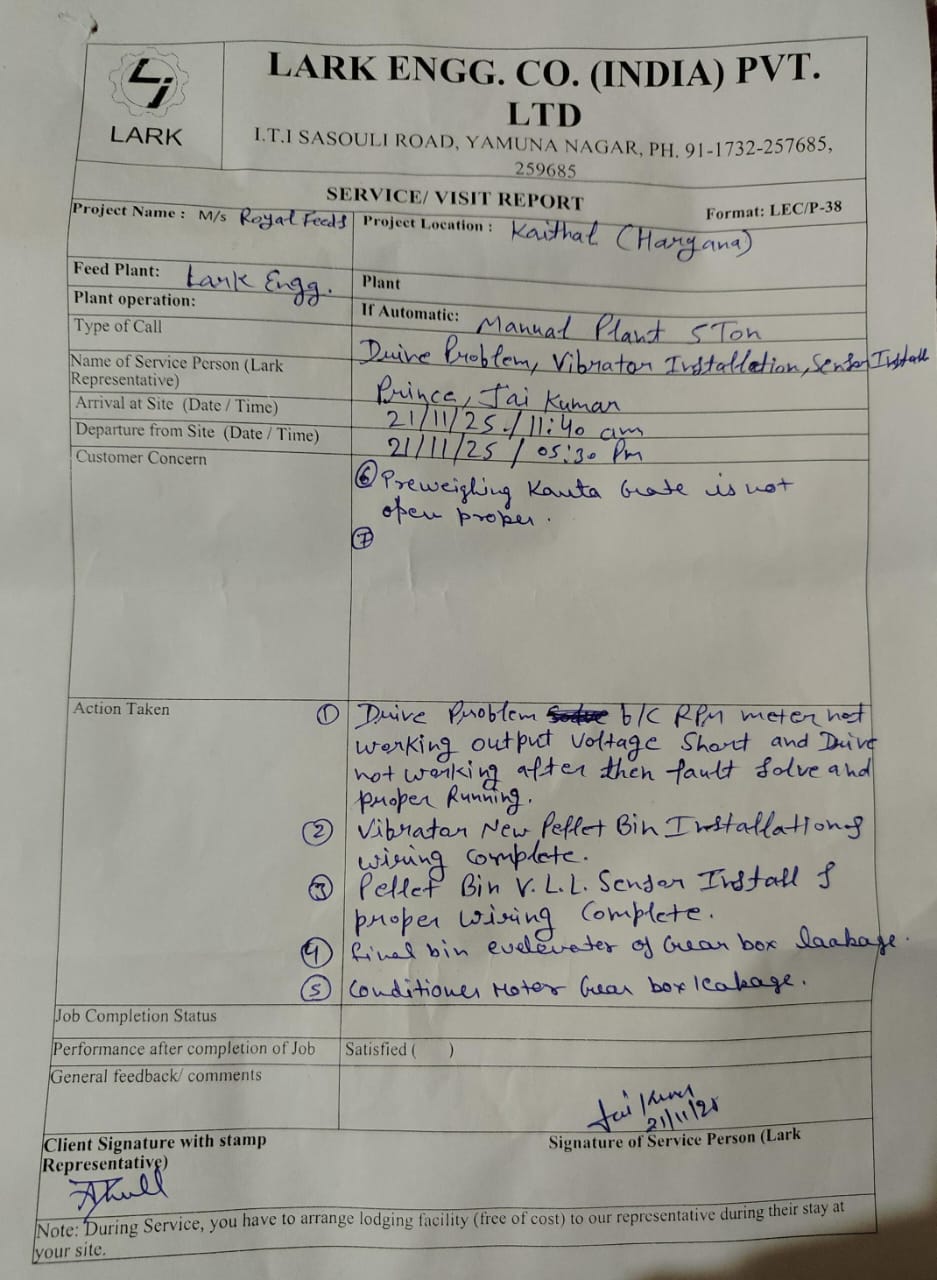 LARK
LARK ENGG. CO. (INDIA) PVT.
LTD
I.T.I SASOULI ROAD, YAMUNA NAGAR, PH. 91-1732-257685,
259685
SERVICE/ VISIT REPORT
Format: LEC/P-38
Project Name : M/s Royal Feeds
Project Location : Kaithal (Haryana)
Feed Plant: Lark Engg.
Plant
Plant operation:
If Automatic: Manual Plant 5 Ton
Type of Call
Drive Problem, Vibrator Installation, Sensor Install
Name of Service Person (Lark
Representative)
Prince, Jai Kumar
Arrival at Site (Date / Time)
21/11/25 / 11:40 am
Departure from Site (Date / Time)
21/11/25 / 05:30 Pm
Customer Concern
⑥ Preweighing Kanta Gate is not
open proper.
⑦
Action Taken
① Drive Problem b/c RPM meter not
working output voltage Short and Drive
not working after then fault solve and
proper Running.
② Vibrator New Pellet Bin Installation &
wiring complete.
③ Pellet Bin V.L.L. Sensor Install &
proper wiring Complete.
④ final bin evelevater of Gear box laakage.
⑤ Conditioner Motor Gear box leakage.
Job Completion Status
Performance after completion of Job
Satisfied ( )
General feedback/ comments
Jai Kumar
21/11/25
Client Signature with stamp
Representative)
Signature of Service Person (Lark
Note: During Service, you have to arrange lodging facility (free of cost) to our representative during their stay at
your site.